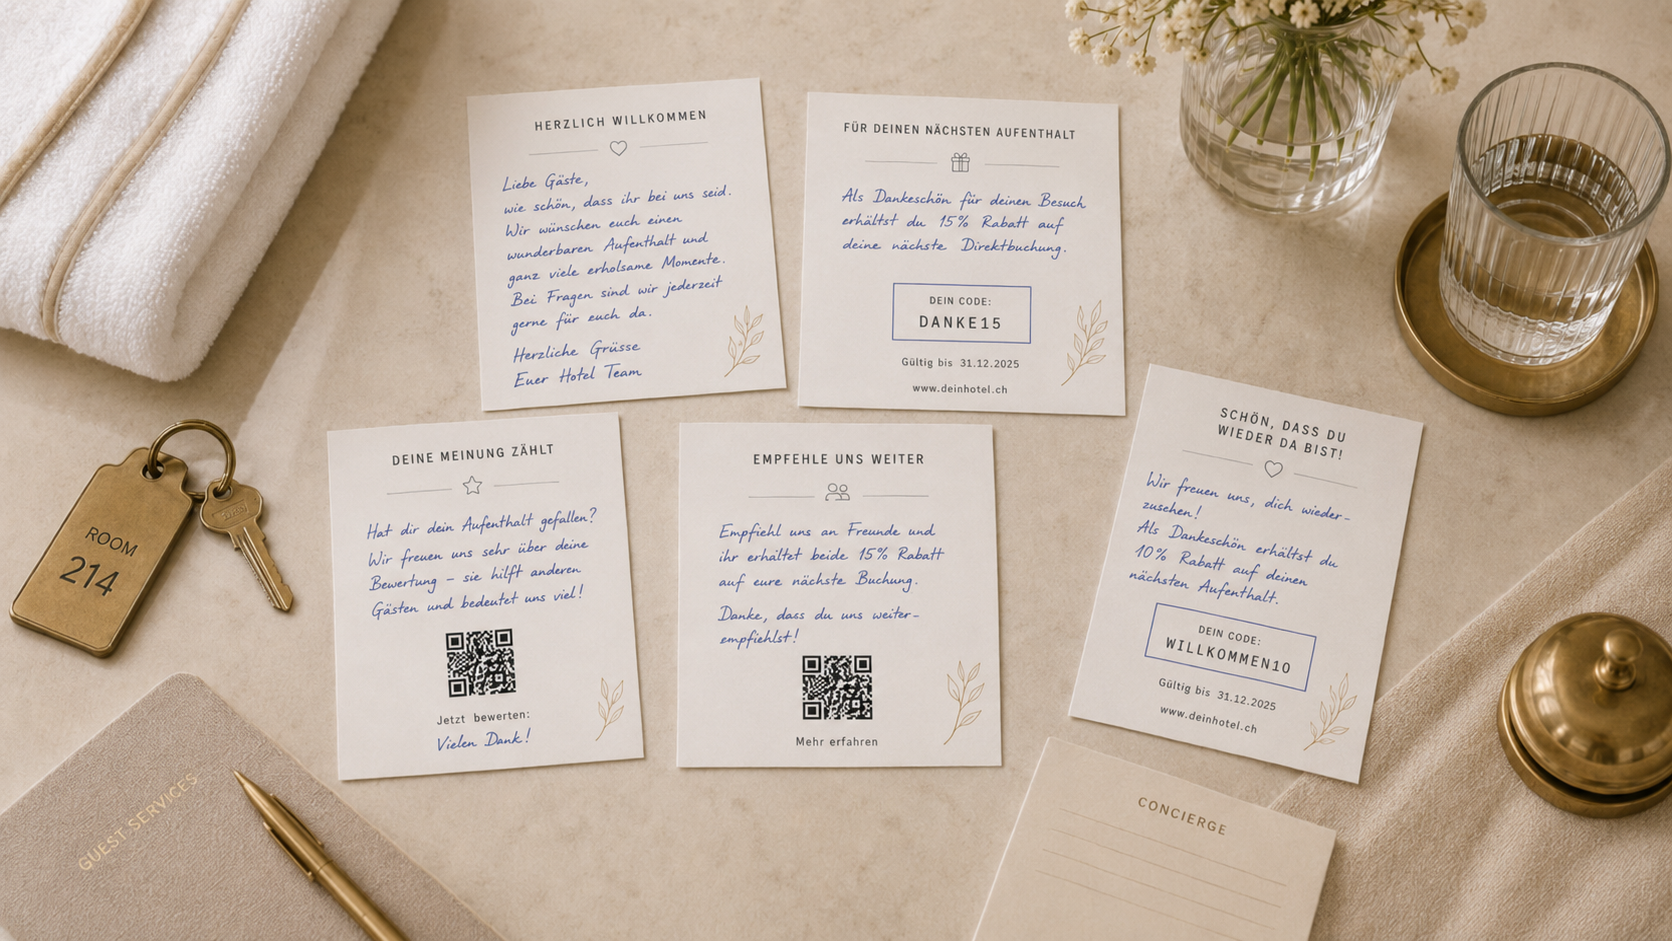 HERZLICH WILLKOMMEN
Liebe Gäste,
wie schön, dass ihr bei uns seid.
Wir wünschen euch einen
wunderbaren Aufenthalt und
ganz viele erholsame Momente.
Bei Fragen sind wir jederzeit
gerne für euch da.
Herzliche Grüsse
Euer Hotel Team
FÜR DEINEN NÄCHSTEN AUFENTHALT
Als Dankeschön für deinen Besuch
erhältst du 15% Rabatt auf
deine nächste Direktbuchung.
DEIN CODE:
DANKE15
Gültig bis 31.12.2025
www.deinhotel.ch
DEINE MEINUNG ZÄHLT
Hat dir dein Aufenthalt gefallen?
Wir freuen uns sehr über deine
Bewertung – sie hilft anderen
Gästen und bedeutet uns viel!
Jetzt bewerten:
Vielen Dank!
EMPFEHLE UNS WEITER
Empfiehl uns an Freunde und
ihr erhaltet beide 15% Rabatt
auf eure nächste Buchung.
Danke, dass du uns weiter-
empfiehlst!
Mehr erfahren
SCHÖN, DASS DU
WIEDER DA BIST!
Wir freuen uns, dich wieder-
zusehen!
Als Dankeschön erhältst du
10% Rabatt auf deinen
nächsten Aufenthalt.
DEIN CODE:
WILLKOMMEN10
Gültig bis 31.12.2025
www.deinhotel.ch
ROOM
214
GUEST SERVICES
CONCIERGE